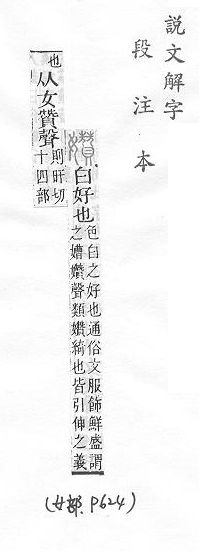 說文解字
段注本
㜺
白好也
色白之好也通俗文服飾鮮盛謂
之嫧㜺聲類㜺綺也皆引伸之義
也
从女贊聲
則旰切
十四部
(女部. P624)